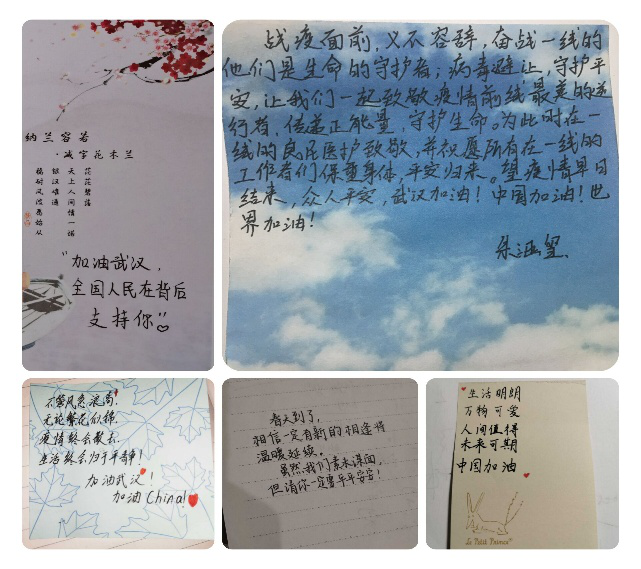 纳兰容若
·减字花木兰
茫茫碧落
天上人间情一诺
银汉难通
稳耐风波愿始从
“加油武汉，
全国人民在背后
支持你
战疫面前，义不容辞，奋战一线的
他们是生命的守护者；病毒避让，守护平
安，让我们一起致敬疫情前线最美的逆
行者，传递正能量，守护生命。为此时在一
线的良民医护致敬，并祝愿所有在一线的
工作者们保重身体，平安归来。望疫情早日
结束，众人平安，武汉加油！中国加油！世
界加油！
不管风急浪高，
无论繁花似锦，
疫情终会散去，
生活终会归于平静！
加油武汉！
加油China！
春天到了，
相信一定有新的相逢将
温暖延续，
虽然我们素未谋面，
但请你一定要平平安安！
生活明朗
万物可爱
人间值得
未来可期
中国加油
Le Petit Prince